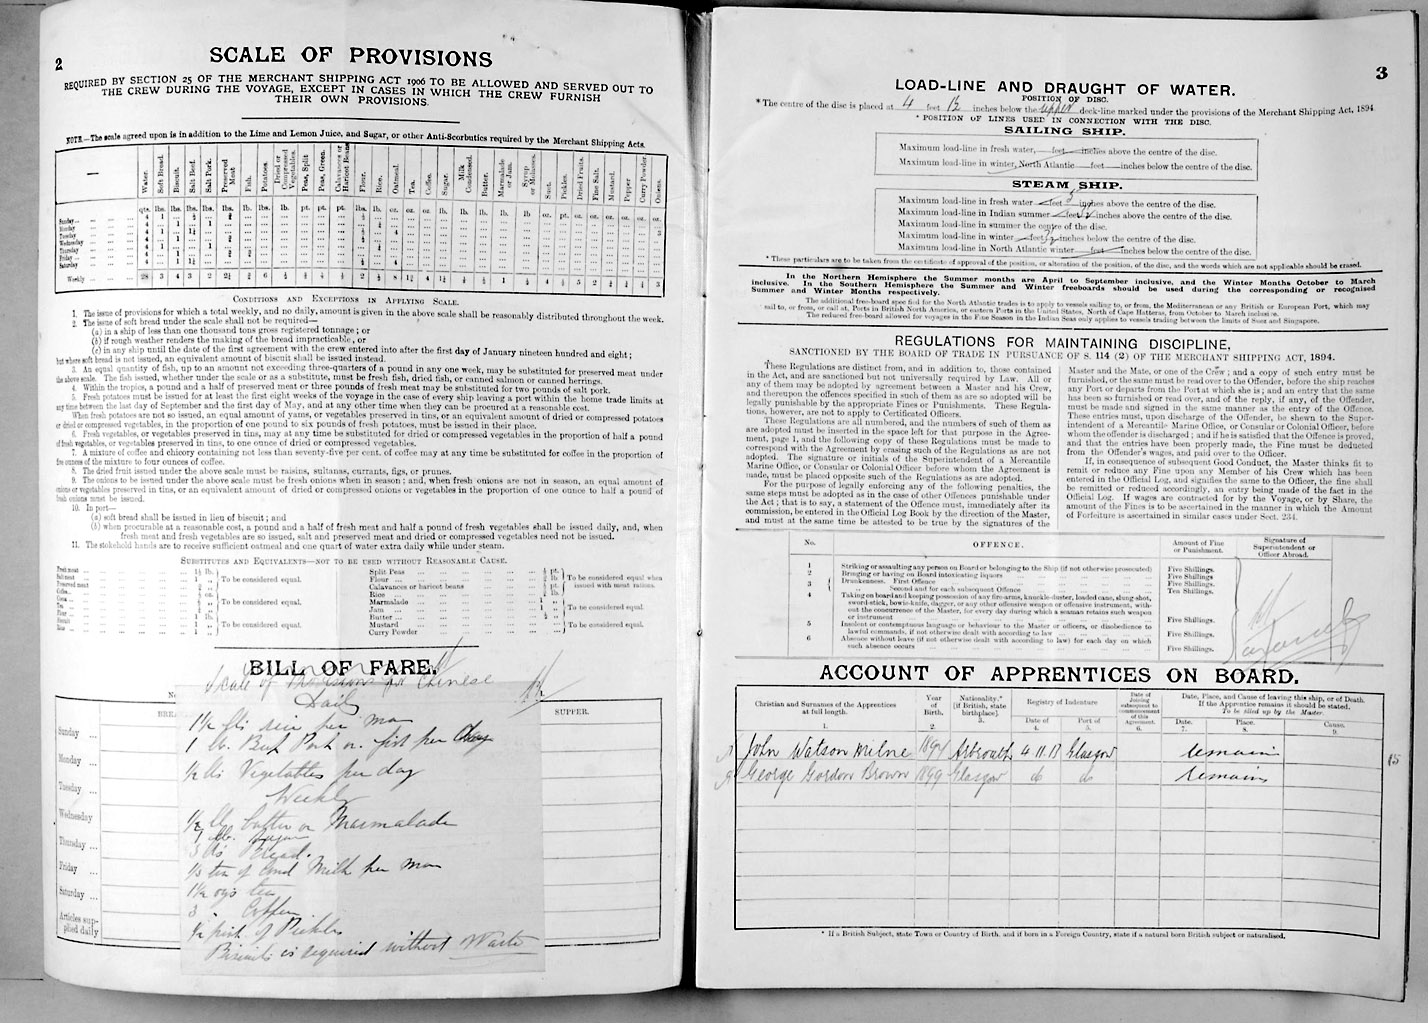 2
SCALE OF PROVISIONS
REQUIRED BY SECTION 25 OF THE MERCHANT SHIPPING ACT 1906 TO BE ALLOWED AND SERVED OUT TO
THE CREW DURING THE VOYAGE, EXCEPT IN CASES IN WHICH THE CREW FURNISH
THEIR OWN PROVISIONS.
NOTE.—The scale agreed upon is in addition to the Lime and Lemon Juice, and Sugar, or other Anti-Scorbutics required by the Merchant Shipping Acts.
Water. Soft Bread. Biscuit. Salt Beef. Salt Pork. Preserved Meat. Fish. Potatoes. Dried or Compressed Vegetables. Peas, Split Peas, Green. Calavances or Haricot Beans Flour. Rice. Oatmeal. Tea. Coffee. Sugar. Milk Condensed. Butter. Marmalade or Jam. Syrup or Molasses. Suet. Pickles. Dried Fruits. Fine Salt. Mustard. Pepper Curry Powder. Onions.
Sunday
Monday
Tuesday
Wednesday
Thursday
Friday
Saturday
Weekly
CONDITIONS AND EXCEPTIONS IN APPLYING SCALE.
1. The issue of provisions for which a total weekly, and no daily, amount is given in the above scale shall be reasonably distributed throughout the week.
2. The issue of soft bread under the scale shall not be required—
(a) in a ship of less than one thousand tons gross registered tonnage; or
(b) if rough weather renders the making of the bread impracticable, or
(c) in any ship until the date of the first agreement with the crew entered into after the first day of January nineteen hundred and eight;
but where soft bread is not issued, an equivalent amount of biscuit shall be issued instead.
3. An equal quantity of fish, up to an amount not exceeding three-quarters of a pound in any one week, may be substituted for preserved meat under
the above scale. The fish issued, whether under the scale or as a substitute, must be fresh fish, dried fish, or canned salmon or canned herrings.
4. Within the tropics, a pound and a half of preserved meat or three pounds of fresh meat may be substituted for two pounds of salt pork.
5. Fresh potatoes must be issued for at least the first eight weeks of the voyage in the case of every ship leaving a port within the home trade limits at
any time between the last day of September and the first day of May, and at any other time when they can be procured at a reasonable cost.
When fresh potatoes are not so issued, an equal amount of yams, or vegetables preserved in tins, or an equivalent amount of dried or compressed potatoes
or dried or compressed vegetables, in the proportion of one pound to six pounds of fresh potatoes, must be issued in their place.
6. Fresh vegetables, or vegetables preserved in tins, may at any time be substituted for dried or compressed vegetables in the proportion of half a pound
of fresh vegetables, or vegetables preserved in tins, to one ounce of dried or compressed vegetables.
7. A mixture of coffee and chicory containing not less than seventy-five per cent. of coffee may at any time be substituted for coffee in the proportion of
five ounces of the mixture to four ounces of coffee.
8. The dried fruit issued under the above scale must be raisins, sultanas, currants, figs, or prunes.
9. The onions to be issued under the above scale must be fresh onions when in season; and, when fresh onions are not in season, an equal amount of
onions or vegetables preserved in tins, or an equivalent amount of dried or compressed onions or vegetables in the proportion of one ounce to half a pound of
fresh onions must be issued.
10. In port—
(a) soft bread shall be issued in lieu of biscuit; and
(b) when procurable at a reasonable cost, a pound and a half of fresh meat and half a pound of fresh vegetables shall be issued daily, and, when
fresh meat and fresh vegetables are so issued, salt and preserved meat and dried or compressed vegetables need not be issued.
11. The stokehold hands are to receive sufficient oatmeal and one quart of water extra daily while under steam.
SUBSTITUTES AND EQUIVALENTS—NOT TO BE USED WITHOUT REASONABLE CAUSE.
Fresh meat
Salt meat
Preserved meat
To be considered equal.
Coffee
Cocoa
Tea
To be considered equal.
Flour
Biscuit
Rice
To be considered equal.
Split Peas
Flour
Calavances or haricot beans
Rice
To be considered equal when
issued with meat rations.
Marmalade
Jam
Butter
To be considered equal.
Mustard
Curry Powder
To be considered equal.
BILL OF FARE.
SUPPER.
Sunday
Monday
Tuesday
Wednesday
Thursday
Friday
Saturday
Articles sup-
plied daily
Scale of Provisions for Chinese
Daily
1½ lbs rice per man
1 lb. Beef Pork or fish per day
½ lbs Vegetables per day
Weekly
½ lb butter or Marmalade
1 lb. sugar
3 lbs Bread.
⅓ tin of Cond Milk per man
1¾ ozs tea
3 " Coffee
½ pint of Pickles
Biscuits as required without Waste
3
LOAD-LINE AND DRAUGHT OF WATER.
POSITION OF DISC.
* The centre of the disc is placed at 4 feet inches below the upper deck-line marked under the provisions of the Merchant Shipping Act, 1894
* POSITION OF LINES USED IN CONNECTION WITH THE DISC.
SAILING SHIP.
Maximum load-line in fresh water, feet inches above the centre of the disc.
Maximum load-line in winter, North Atlantic feet inches below the centre of the disc.
STEAM SHIP.
Maximum load-line in fresh water feet inches above the centre of the disc.
Maximum load-line in Indian summer feet inches above the centre of the disc.
Maximum load-line in summer the centre of the disc.
Maximum load-line in winter feet inches below the centre of the disc.
Maximum load-line in North Atlantic winter feet inches below the centre of the disc.
* These particulars are to be taken from the certificate of approval of the position, or alteration of the position, of the disc, and the words which are not applicable should be erased.
In the Northern Hemisphere the Summer months are April to September inclusive, and the Winter Months October to March
inclusive. In the Southern Hemisphere the Summer and Winter freeboards should be used during the corresponding or recognised
Summer and Winter Months respectively.
The additional free-board specified for the North Atlantic trades is to apply to vessels sailing to, or from, the Mediterranean or any British or European Port, which may
sail to, or from, or call at, Ports in British North America, or eastern Ports in the United States, North of Cape Hatteras, from October to March inclusive.
The reduced free-board allowed for voyages in the Fine Season in the Indian Seas only applies to vessels trading between the limits of Suez and Singapore.
REGULATIONS FOR MAINTAINING DISCIPLINE,
SANCTIONED BY THE BOARD OF TRADE IN PURSUANCE OF S. 114 (2) OF THE MERCHANT SHIPPING ACT, 1894.
These Regulations are distinct from, and in addition to, those contained
in the Act, and are sanctioned but not universally required by Law. All or
any of them may be adopted by agreement between a Master and his Crew,
and thereupon the offences specified in such of them as are so adopted will be
legally punishable by the appropriate Fines or Punishments. These Regula-
tions, however, are not to apply to Certificated Officers.
These Regulations are all numbered, and the numbers of such of them as
are adopted must be inserted in the space left for that purpose in the Agree-
ment, page 1, and the following copy of these Regulations must be made to
correspond with the Agreement by erasing such of the Regulations as are not
adopted. The signature or initials of the Superintendent of a Mercantile
Marine Office, or Consular or Colonial Officer before whom the Agreement is
made, must be placed opposite such of the Regulations as are adopted.
For the purpose of legally enforcing any of the following penalties, the
same steps must be adopted as in the case of other Offences punishable under
the Act; that is to say, a statement of the Offence must, immediately after its
commission, be entered in the Official Log Book by the direction of the Master,
and must at the same time be attested to be true by the signatures of the
Master and the Mate, or one of the Crew; and a copy of such entry must be
furnished, or the same must be read over to the Offender, before the ship reaches
any Port or departs from the Port at which she is; and an entry that the same
has been so furnished or read over, and of the reply, if any, of the Offender,
must be made and signed in the same manner as the entry of the Offence.
These entries must, upon discharge of the Offender, be shewn to the Super-
intendent of a Mercantile Marine Office, or Consular or Colonial Officer, before
whom the offender is discharged; and if he is satisfied that the Offence is proved,
and that the entries have been properly made, the Fine must be deducted
from the Offender's wages, and paid over to the Officer.
If, in consequence of subsequent Good Conduct, the Master thinks fit to
remit or reduce any Fine upon any Member of his Crew which has been
entered in the Official Log, and signifies the same to the Officer, the fine shall
be remitted or reduced accordingly, an entry being made of the fact in the
Official Log. If wages are contracted for by the Voyage, or by Share, the
amount of the Fines is to be ascertained in the manner in which the Amount
of Forfeiture is ascertained in similar cases under Sect. 234.
No. OFFENCE. Amount of Fine or Punishment. Signature of Superintendent or Officer Abroad.
1 Striking or assaulting any person on Board or belonging to the Ship (if not otherwise prosecuted) Five Shillings.
2 Bringing or having on Board intoxicating liquors Five Shillings.
3 Drunkenness. First Offence Five Shillings.
" Second and for each subsequent Offence Ten Shillings.
4 Taking on board and keeping possession of any fire-arms, knuckle-duster, loaded cane, slung-shot,
sword-stick, bowie-knife, dagger, or any other offensive weapon or offensive instrument, with-
out the concurrence of the Master, for every day during which a seaman retains such weapon
or instrument Five Shillings.
5 Insolent or contemptuous language or behaviour to the Master or officers, or disobedience to
lawful commands, if not otherwise dealt with according to law Five Shillings.
6 Absence without leave (if not otherwise dealt with according to law) for each day on which
such absence occurs Five Shillings.
ACCOUNT OF APPRENTICES ON BOARD.
Christian and Surnames of the Apprentices at full length. Year of Birth. Nationality.* [if British, state birthplace]. Registry of Indenture Date of Port of Date of Joining subsequent to commencement of this Agreement. Date, Place, and Cause of leaving this ship, or of Death. If the Apprentice remains it should be stated. To be filled up by the Master. Date. Place. Cause.
1. 2. 3. 4. 5. 6. 7. 8. 9.
John Watson Milne 1897 Arbroath 4.11.13 Glasgow remains
George Gordon Brown 1899 Glasgow do do remains
15
* If a British Subject, state Town or Country of Birth, and if born in a Foreign Country, state if a natural born British subject or naturalised.